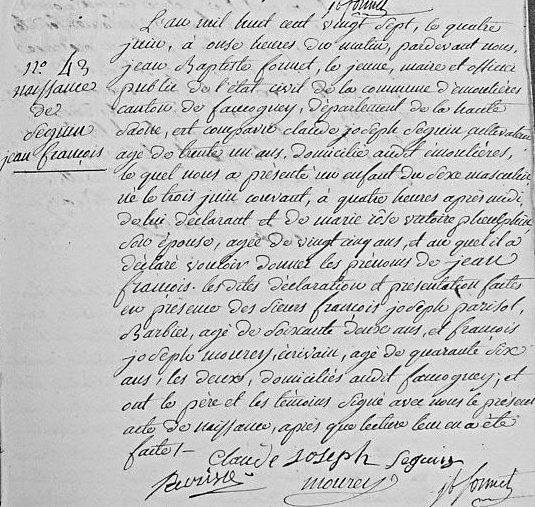 jb formet
L'an mil huit cent vingt sept, le quatre
juin, à onse heures du matin, pardevant nous,
jean Baptiste formet, le jeune, maire et officier
public de l'état civil de la commune d'emoulieres
canton de faucogney, département de la haute
Saône, est comparu claude joseph Seguin cultivateur
agé de trente un ans, domicilié audit emoulières,
le quel nous a présenté un enfant du Sexe masculin
né le trois juin courant, à quatre heures après midi,
de lui déclarant et de marie rôse victoire
Son épouse, agée de vingt cinq ans, et au quel il a
déclaré vouloir donner les prénoms de jean
françois. les dites déclaration et présentation faites
en présence des Sieurs françois joseph parisot,
Barbier, agé de Soixante deux ans, et françois
joseph mourey, écrivain, agé de quarante Six
ans, les deux, domiciliés audit faucogney, et
ont le père et les témoins Signé avec nous le présent
acte de naissance, après que lecture leur en a été
faite /-
n.º 43
naissance
de
Seguin
jean françois
Claude joseph Seguin
mourey
jb formet